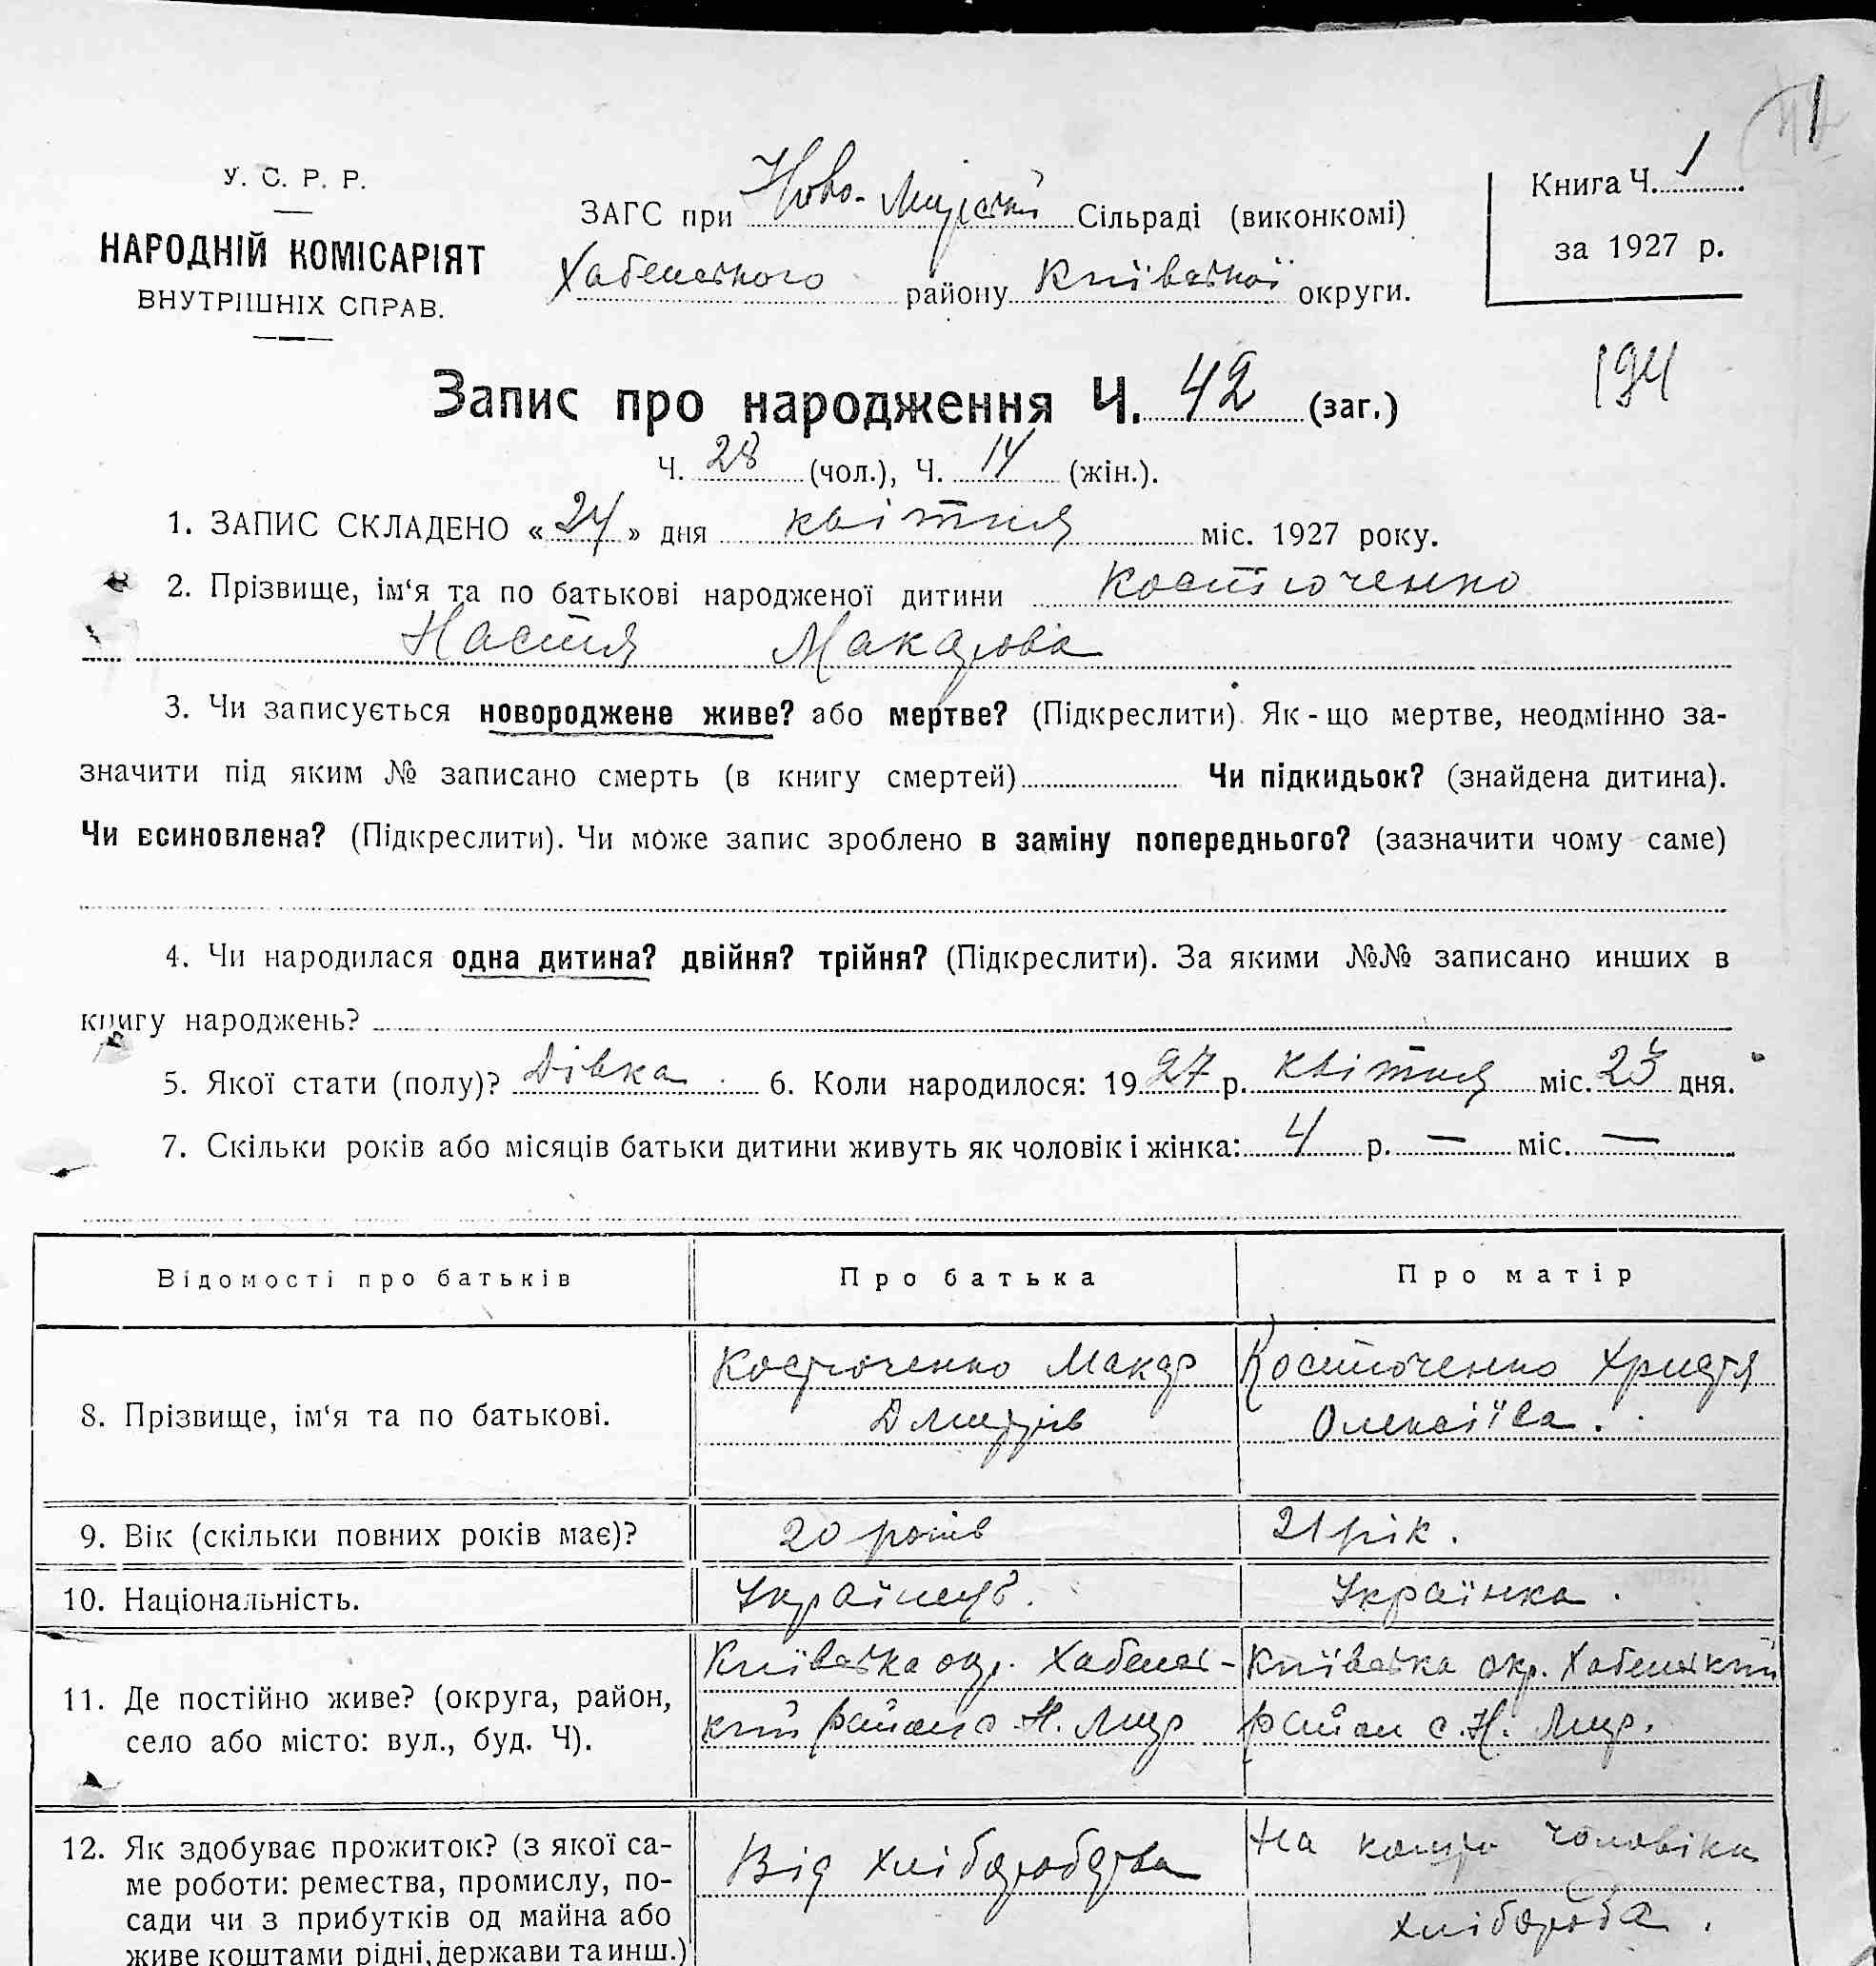 1
У. С. Р. Р.
НАРОДНІЙ КОМІСАРІЯТ
ВНУТРІШНІХ СПРАВ.
ЗАГС при Ново-Мирській Сільраді (виконкомі)
Хабенського району Київської округи.
Книга Ч. 1
за 1927 р.
194
Запис про народження Ч. 42 (заг.)
Ч. 28 (чол.), Ч. 14 (жін.).
1. ЗАПИС СКЛАДЕНО «24» дня квітня міс. 1927 року.
2. Прізвище, ім‘я та по батькові народженої дитини Костюченко
Настя Макарова
3. Чи записується новороджене живе? або мертве? (Підкреслити). Як-що мертве, неодмінно за-
значити під яким № записано смерть (в книгу смертей) Чи підкидьок? (знайдена дитина).
Чи всиновлена? (Підкреслити). Чи може запис зроблено в заміну попереднього? (зазначити чому саме)
4. Чи народилася одна дитина? двійня? трійня? (Підкреслити). За якими №№ записано инших в
книгу народжень?
5. Якої стати (полу)? Дівка 6. Коли народилося: 1927 р. квітня міс. 23 дня.
7. Скільки років або місяців батьки дитини живуть як чоловік і жінка: 4 р. — міс. —
Відомості про батьків Про батька Про матір
8. Прізвище, ім‘я та по батькові.
Костюченко Макар
Дмитрів
Костюченко Христя
Олексіїва.
9. Вік (скільки повних років має)? 20 років 21 рік.
10. Національність. Українець. Українка.
11. Де постійно живе? (округа, район,
село або місто: вул., буд. Ч).
Київська окр. Хабенсь-
кий район с. Н. Мир
Київська окр. Хабенський
район с. Н. Мир.
12. Як здобуває прожиток? (з якої са-
ме роботи: ремества, промислу, по-
сади чи з прибутків од майна або
живе коштами рідні, держави та инш.)
Від хліборобства
На кошти чоловіка
хлібороба.